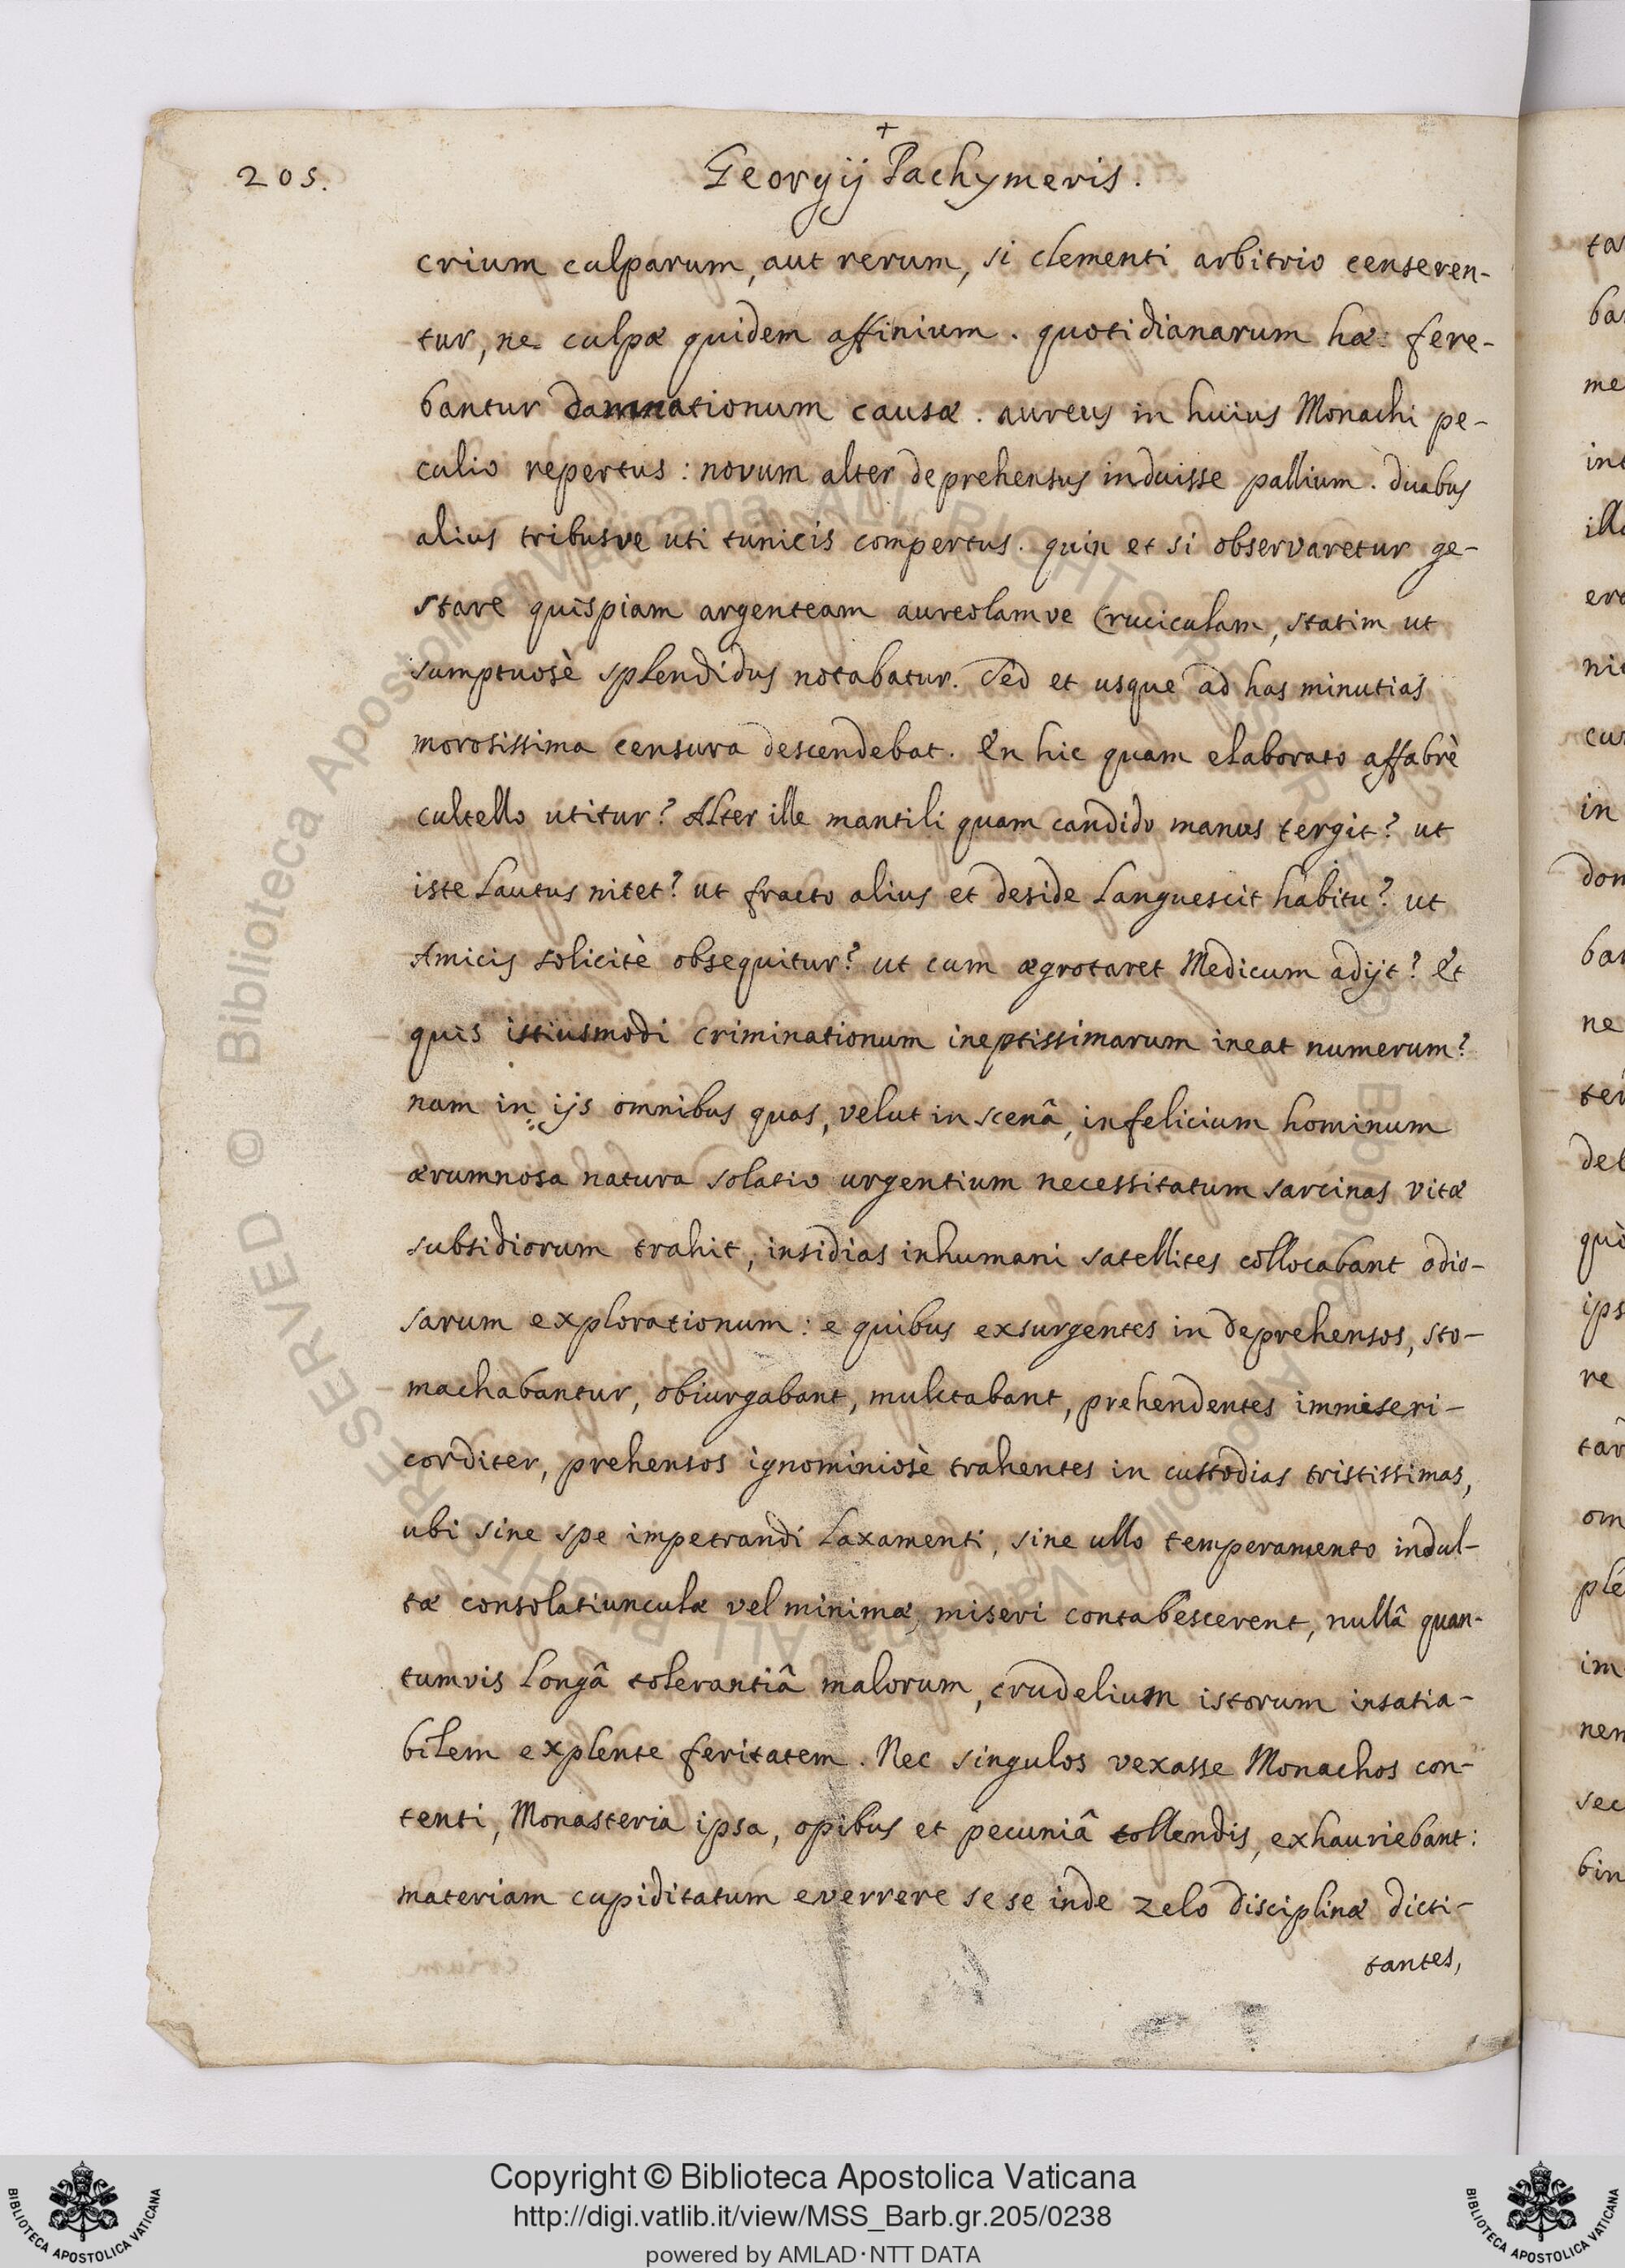 +
205.
Georgij Pachymeris.
crium culparum, aut rerum, si clementi arbitrio censeren-
tur, ne culpæ quidem affinium. quotidianarum hæ fere-
bantur damnationum causæ. aureus in huius Monachi pe-
culio repertus: novum alter deprehensus induisse pallium. duabus
alius tribusve uti tunicis compertus. quin et si observaretur ge-
stare quispiam argenteam aureolamve Cruciculam, statim ut
sumptuosè splendidus notabatur. Sed et usque ad has minutias
morosissima censura descendebat. En hic quam elaborato affabrè
cultello utitur? Alter ille mantili quam candido manus tergit? ut
iste Lautus nitet? ut fracto alius et deside Languescit habitu? ut
Amicis solicitè obsequitur? ut cum ægrotaret Medicum adijt? Et
quis istiusmodi criminationum ineptissimarum ineat numerum?
nam in ijs omnibus quas, velut in scenâ, infelicium hominum
ærumnosa natura solatio urgentium necessitatum sarcinas vitæ
subsidiorum trahit, insidias inhumani satellites collocabant odio-
sarum explorationum: e quibus exsurgentes in deprehensos, sto-
machabantur, obiurgabant, mulctabant, prehendentes immiseri-
corditer, prehensos ignominiosè trahentes in custodias tristissimas,
ubi sine spe impetrandi Laxamenti, sine ullo temperamento indul-
tæ consolatiunculæ vel minimæ, miseri contabescerent, nullâ quan-
tumvis Longâ tolerantiâ malorum, crudelium istorum insatia-
bilem explente feritatem. Nec singulos vexasse Monachos con-
tenti, Monasteria ipsa, opibus et pecuniâ tollendis, exhauriebant:
materiam cupiditatum everrere se se inde zelo disciplinæ dicti-
tantes,
ta
ba
me
int
ill
ni
in
don
ba
ne
del
què
ips
re
om
im
nen
sec
bin
© Biblioteca Apostolica Vaticana ALL RIGHTS RESERVED © Biblioteca Apostolica Vaticana ALL RIGHTS RESERVED
Copyright © Biblioteca Apostolica Vaticana
http://digi.vatlib.it/view/MSS_Barb.gr.205/0238
powered by AMLAD·NTT DATA
BIBLIOTECA APOSTOLICA VATICANA
BIBLIOTECA APOSTOLICA VATICANA